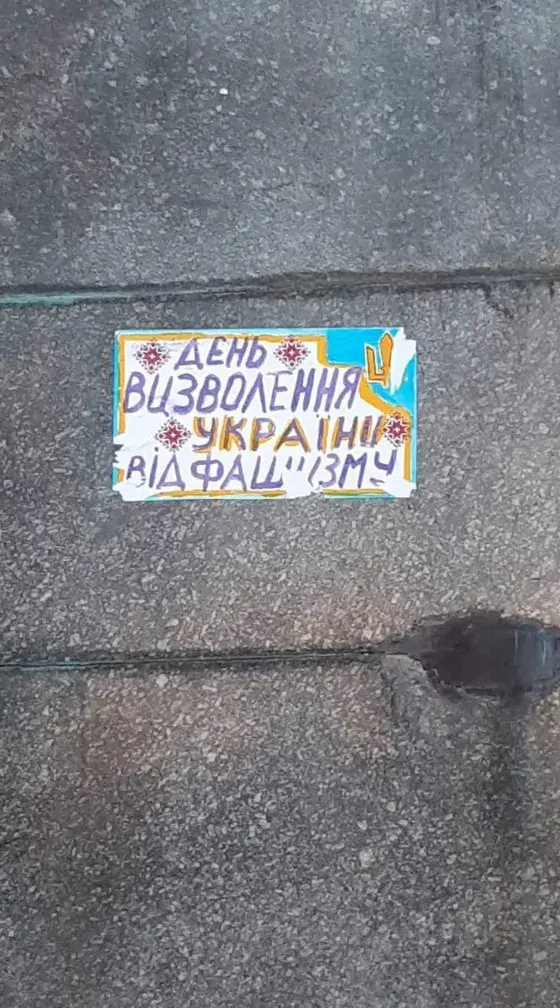 ДЕНЬ
ВИЗВОЛЕННЯ
УКРАЇНИ
ВІД ФАШИЗМУ